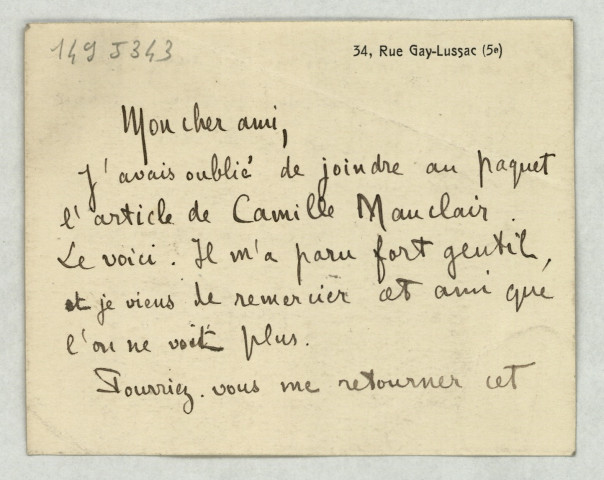 149 J 343
34, Rue Gay-Lussac (5e)
Mon cher ami,
J'avais oublié de joindre au paquet
l'article de Camille Mauclair.
Le voici. Il m'a paru fort gentil,
et je viens de remercier cet ami que
l'on ne voit plus.
Pourriez-vous me retourner cet